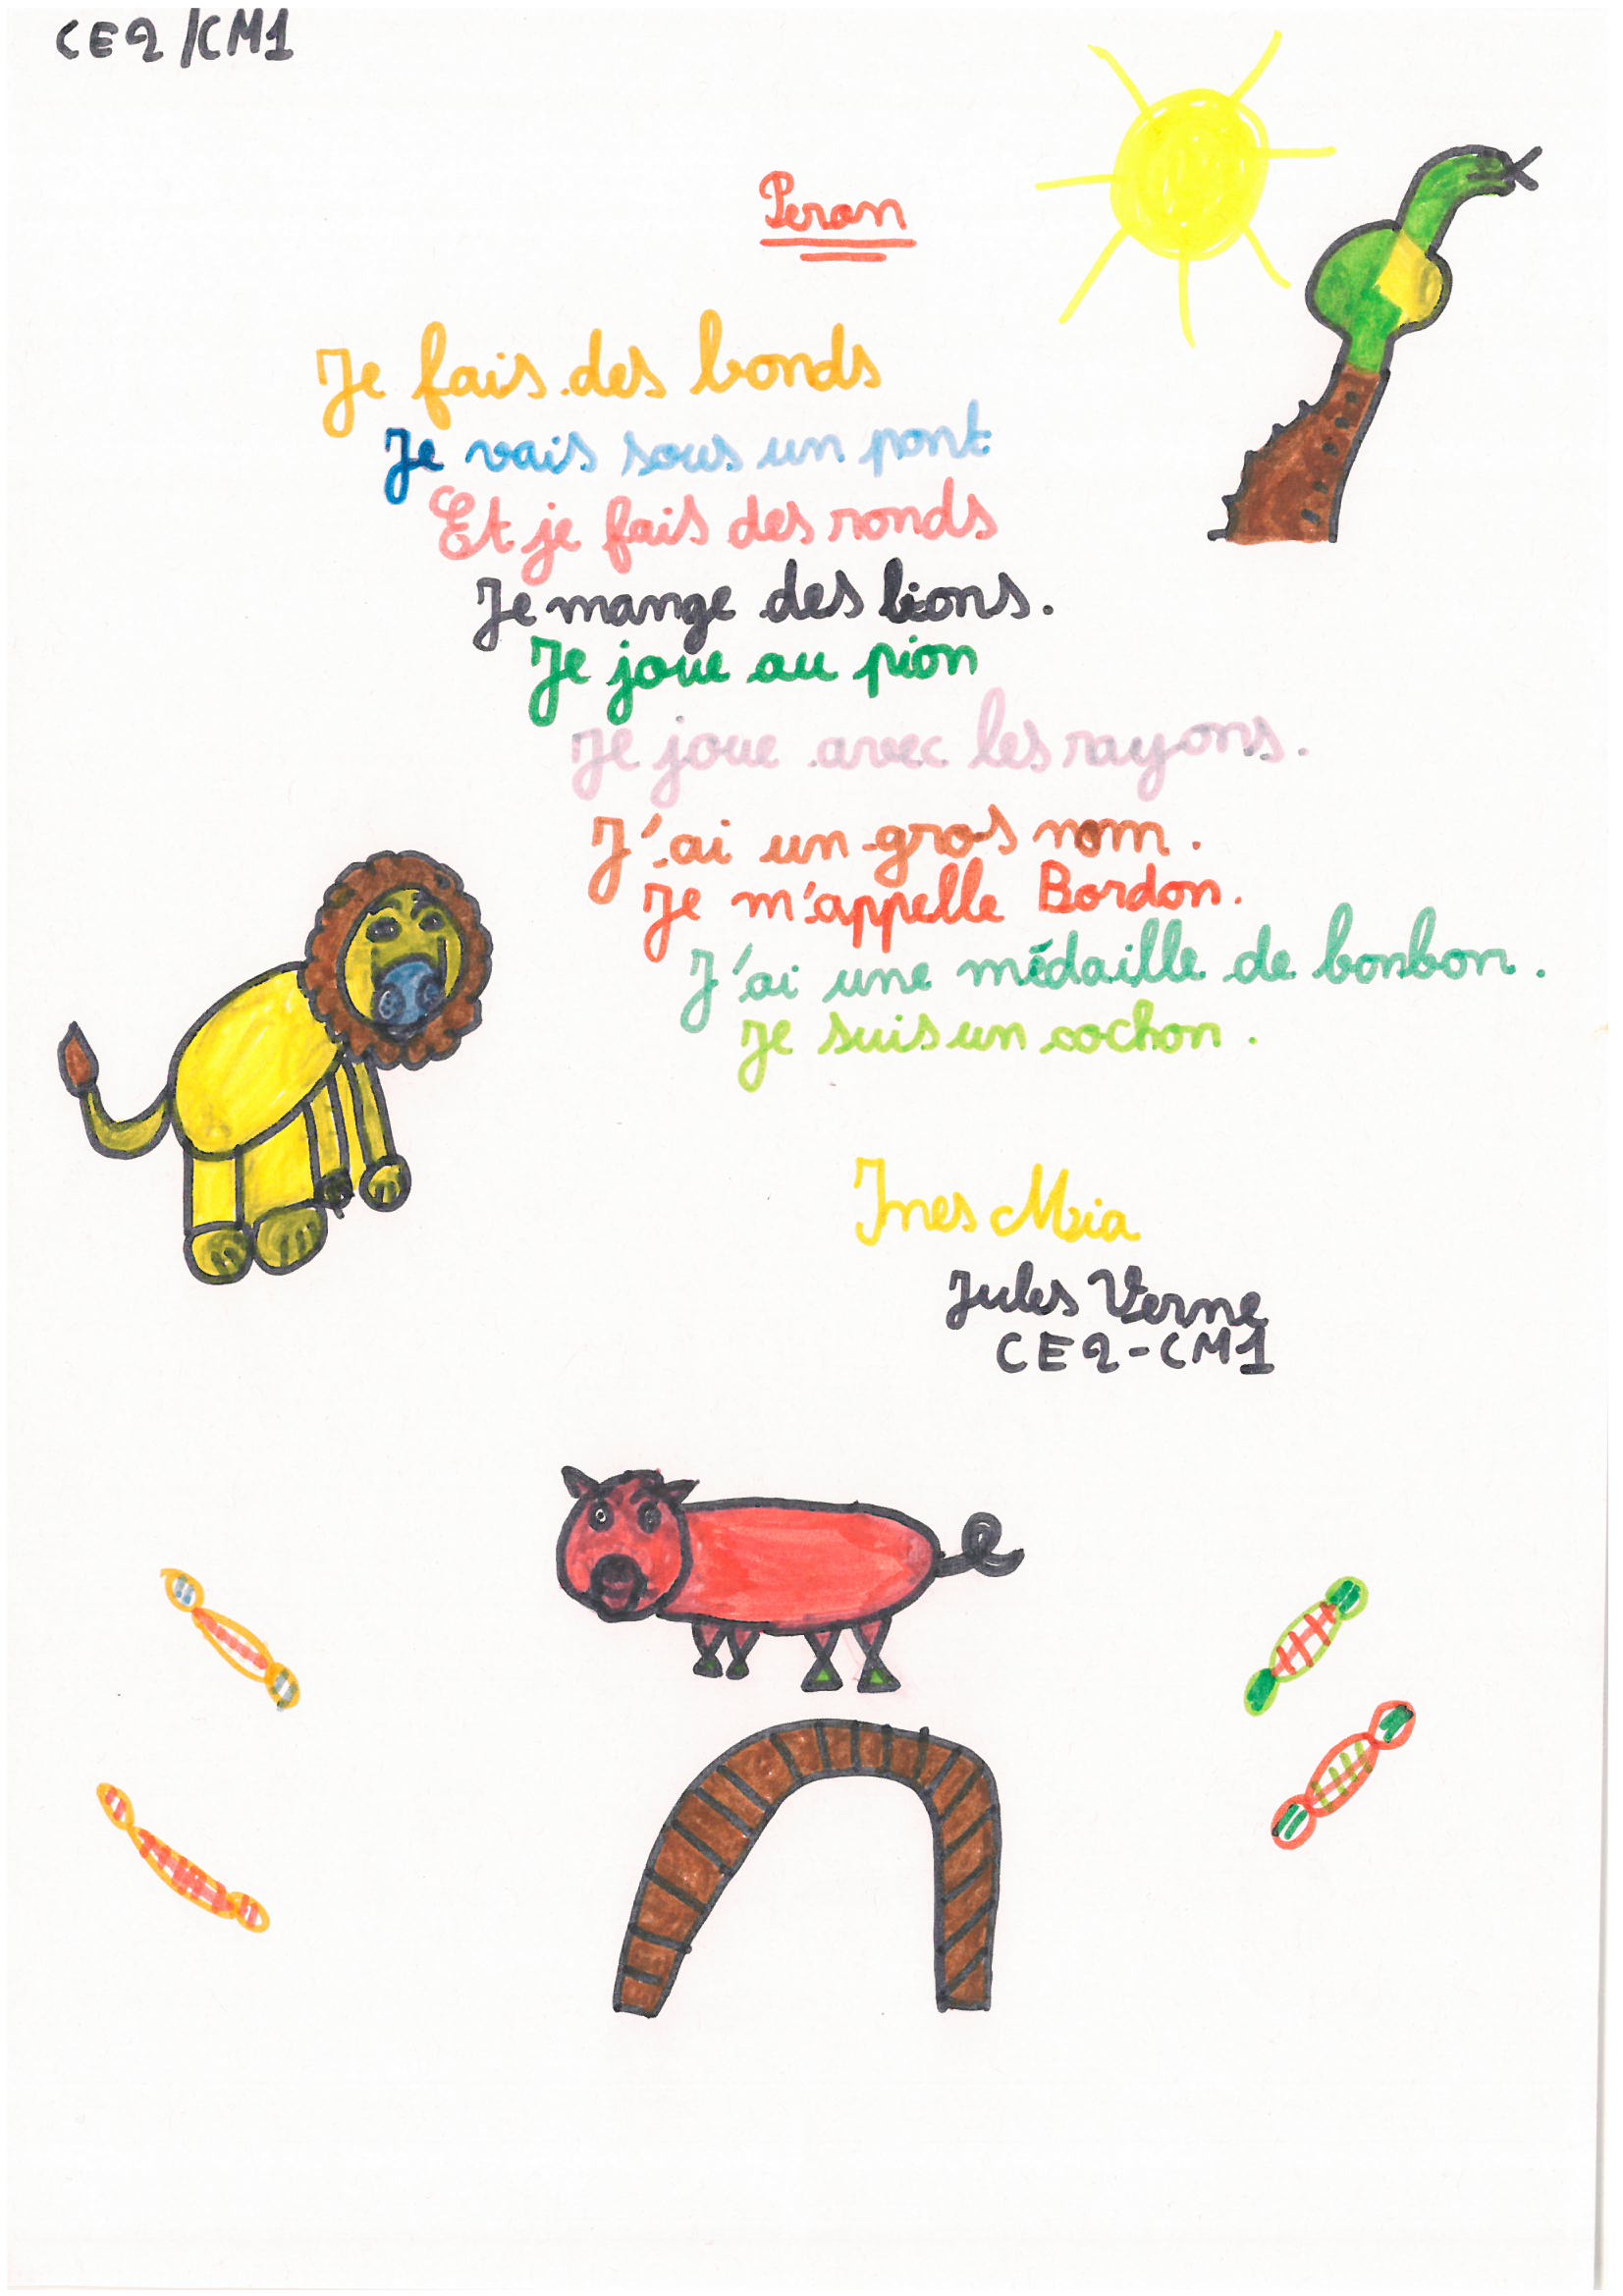 CE2/CM1
Peron
Je fais des bonds
Je vais sous un pont
Et je fais des ronds
Je mange des lions.
Je joue au pion
Je joue avec les rayons.
J'ai un gros nom.
Je m'appelle Bordon.
J'ai une médaille de bonbon.
Je suis un cochon.
Ines Mia
Jules Verne
CE2-CM1